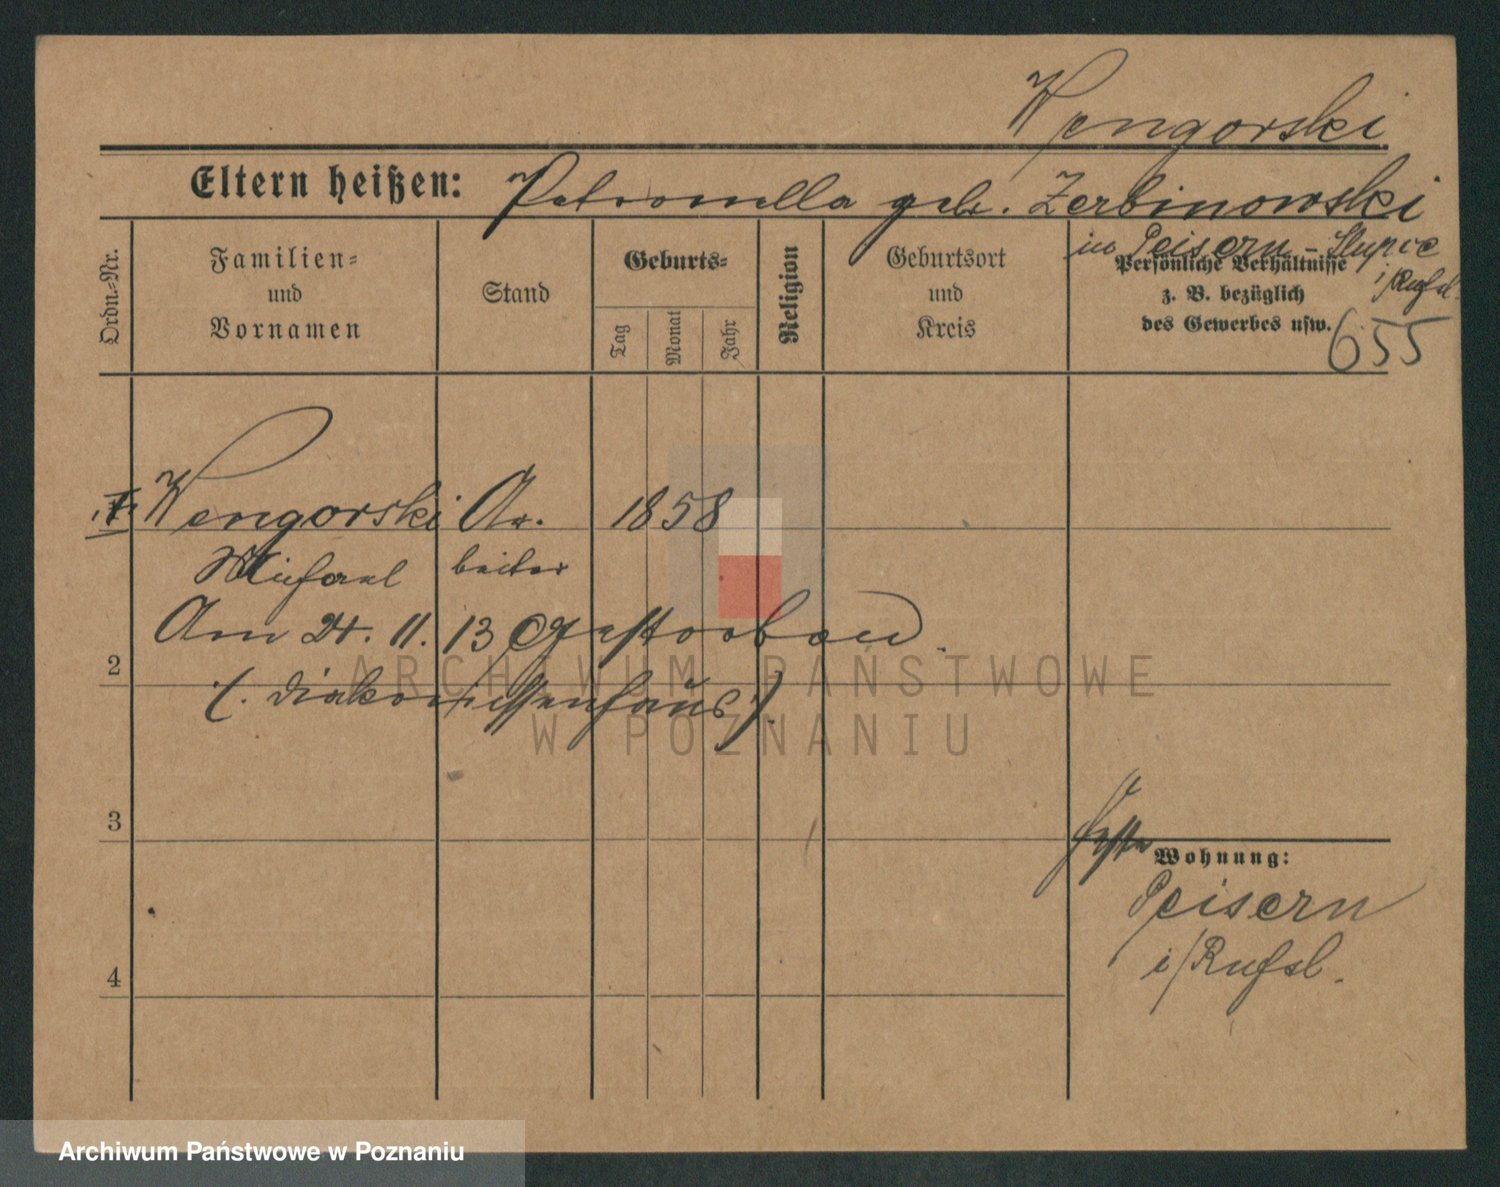 Wengorski
Eltern heißen: Petronella geb. Zerbinowski
in Peisern - Slupce
i/Rußl.
Ordn.-Nr.
Familien-
und
Vornamen
Stand
Geburts-
Tag
Monat
Jahr
Religion
Geburtsort
und
Kreis
Persönliche Verhältnisse
z. B. bezüglich
des Gewerbes usw.
655
Wengorski Ar- 1858
Michael beiter
Am 24. 11. 13 Gestorben.
2
(. Diakonissenhaus.)
3
Wohnung:
Peisern
i/Rußl.
4
ARCHIWUM PAŃSTWOWE
W POZNANIU
Archiwum Państwowe w Poznaniu